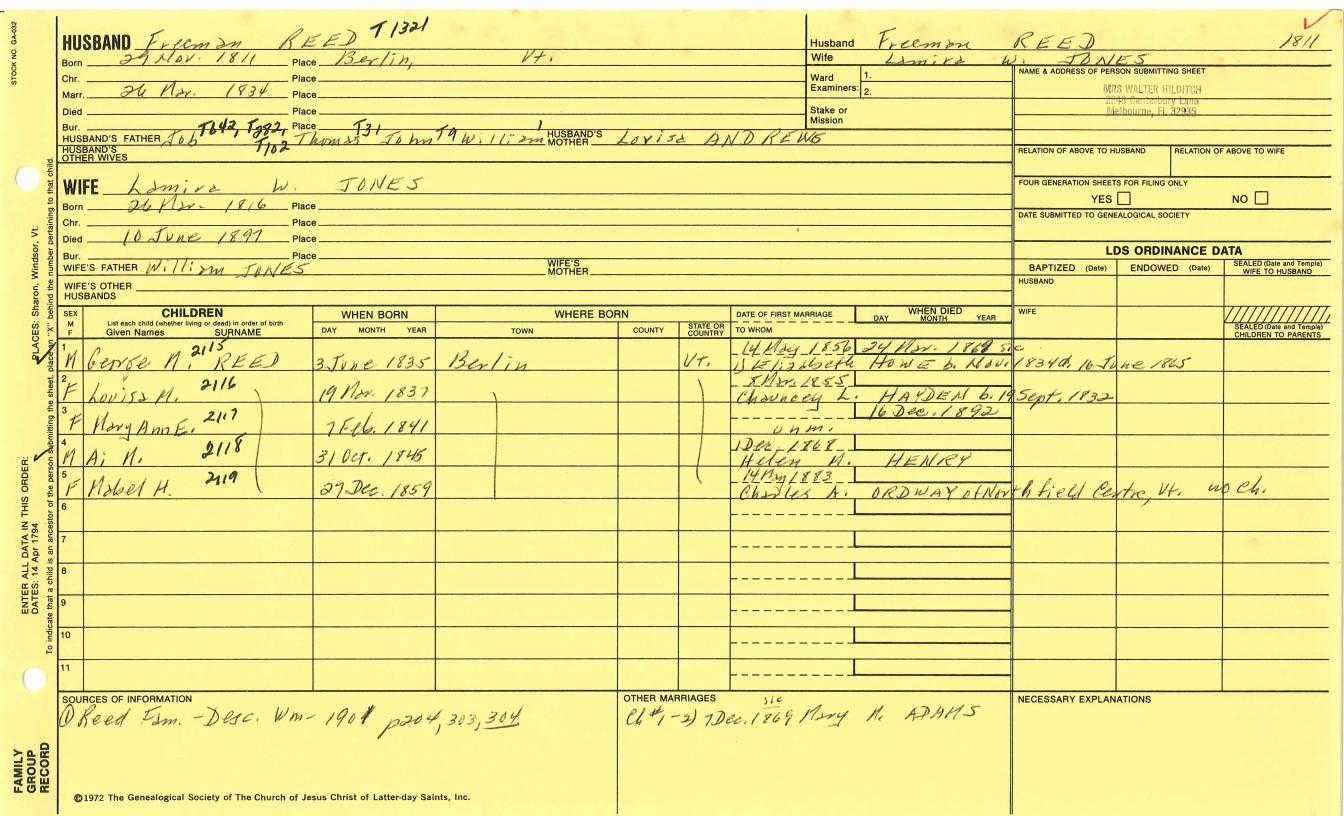 STOCK NO. GA-032
HUSBAND Freeman REED T1321
Born 29 Nov. 1811 Place Berlin, Vt.
Chr. Place
Marr. 26 Mar. 1834 Place
Died Place
Bur. Place
T642, T282, T31
HUSBAND'S FATHER Job T102 Thomas John T9 William HUSBAND'S MOTHER Lovisa ANDREWS
HUSBAND'S OTHER WIVES
WIFE Lamira W. JONES
Born 26 Mar. 1816 Place
Chr. Place
Died 10 June 1897 Place
Bur. Place
WIFE'S FATHER William JONES WIFE'S MOTHER
WIFE'S OTHER HUSBANDS
Husband Freeman REED 1811
Wife Lamira W. JONES
Ward Examiners: 1.
2.
Stake or Mission
NAME & ADDRESS OF PERSON SUBMITTING SHEET
MRS WALTER HILDITCH
2248 Canterbury Lane
Melbourne, Fl 32935
RELATION OF ABOVE TO HUSBAND RELATION OF ABOVE TO WIFE
FOUR GENERATION SHEETS FOR FILING ONLY
YES NO
DATE SUBMITTED TO GENEALOGICAL SOCIETY
LDS ORDINANCE DATA
BAPTIZED (Date) ENDOWED (Date) SEALED (Date and Temple) WIFE TO HUSBAND
HUSBAND
WIFE
SEALED (Date and Temple) CHILDREN TO PARENTS
SEX M F CHILDREN WHEN BORN WHERE BORN DATE OF FIRST MARRIAGE WHEN DIED
List each child (whether living or dead) in order of birth
Given Names SURNAME DAY MONTH YEAR TOWN COUNTY STATE OR COUNTRY TO WHOM DAY MONTH YEAR
1 2115 14 May 1856 24 Mar. 1868 sic
M George M. REED 3 June 1835 Berlin Vt. 1) Elizabeth HOWE b. Nov. 1834 d. 16 June 1865
2 2116 8 Mar. 1855
F Louisa M. 19 Mar. 1837 Chauncey L. HAYDEN b. 19 Sept. 1832
3 2117 16 Dec. 1892
F Mary Ann E. 7 Feb. 1841 unm.
4 2118 1 Dec. 1868
M Ai N. 31 Oct. 1845 Helen M. HENRY
5 2119 14 May 1883
F Mabel H. 27 Dec. 1859 Charles A. ORDWAY of Northfield Centre, Vt. no ch.
6
7
8
9
10
11
SOURCES OF INFORMATION
① Reed Fam. - Desc. Wm - 1901 p204, 303, 304
OTHER MARRIAGES
Ch #1 - 2) 7 Dec. 1869 sic Mary M. ADAMS
NECESSARY EXPLANATIONS
©1972 The Genealogical Society of The Church of Jesus Christ of Latter-day Saints, Inc.
FAMILY GROUP RECORD
ENTER ALL DATA IN THIS ORDER:
DATES: 14 Apr 1794
PLACES: Sharon, Windsor, Vt.
To indicate that a child is an ancestor of the person submitting the sheet, place an "X" behind the number pertaining to that child.